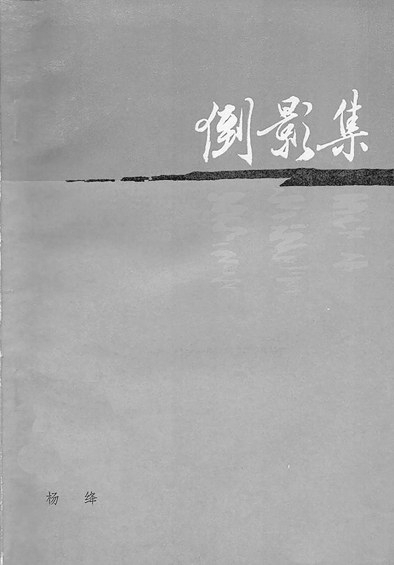 倒影集
杨 绛